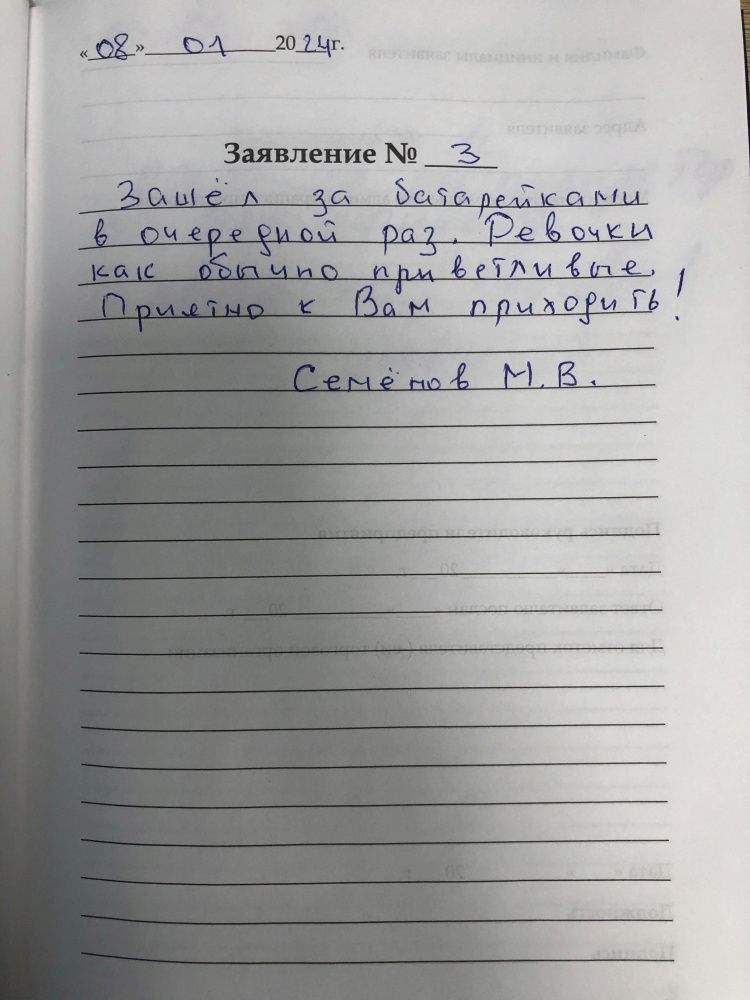 «08» 01 2024г.
Заявление № 3
Зашёл за батарейками
в очередной раз. Девочки
как обычно приветливые.
Приятно к Вам приходить!
Семёнов М.В.